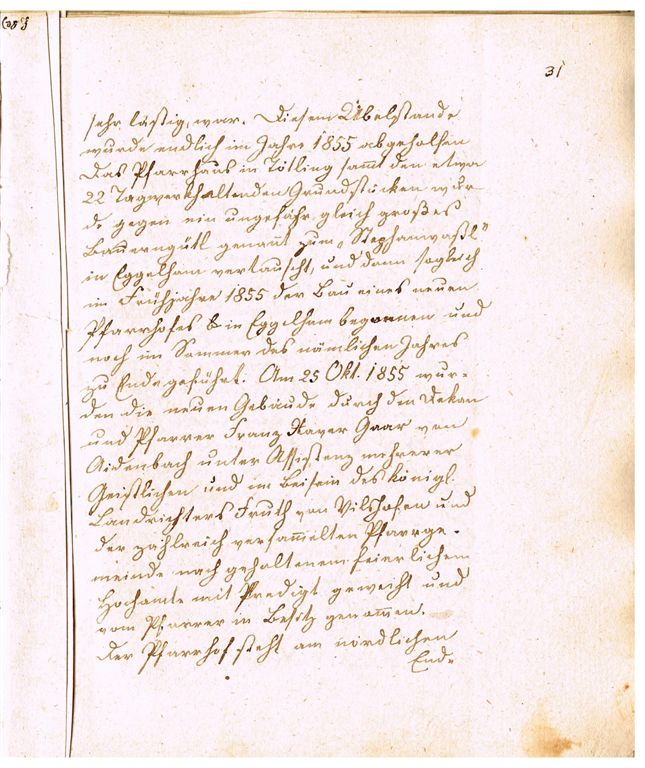 31
sehr lästig, war. Diesem Übelstande
wurde endlich im Jahre 1855 abgeholfen
Das Pfarrhaus in Tötling sam̄t den etwa
22 Tagwerk haltenden Grundstücken wur-
de gegen ein ungefähr gleich großes
Bauerngütl genan̄t zum „Stephanwastl"
in Eggelham vertauscht, und dann sogleich
im Frühjahre 1855 der Bau eines neuen
Pfarrhofes in Eggelham begonnen und
noch im Sommer des nämlichen Jahres
zu Ende geführt. Am 25 Okt. 1855 wur-
den die neuen Gebäude durch den Dekan
und Pfarrer Franz Xaver Gaar von
Aidenbach unter Assistenz mehrerer
Geistlichen und im Beisein des königl.
Landrichters Fruth von Vilshofen und
der zahlreich versam̄elten Pfarrge-
meinde nach gehaltenem feierlichem
Hochamte mit Predigt geweiht und
vom Pfarrer in Besitz genom̄en.
Der Pfarrhof steht am nördlichen
Ende